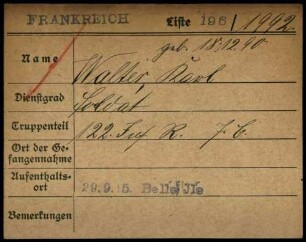 FRANKREICH Liste 196 / 1992
geb. 15.12.90
Name Walter, Karl
Dienstgrad Soldat
Truppenteil 122. Inf R. 7. C.
Ort der Ge-
fangennahme
Aufenthalts-
ort 29.9.15. Belle Jle
Bemerkungen